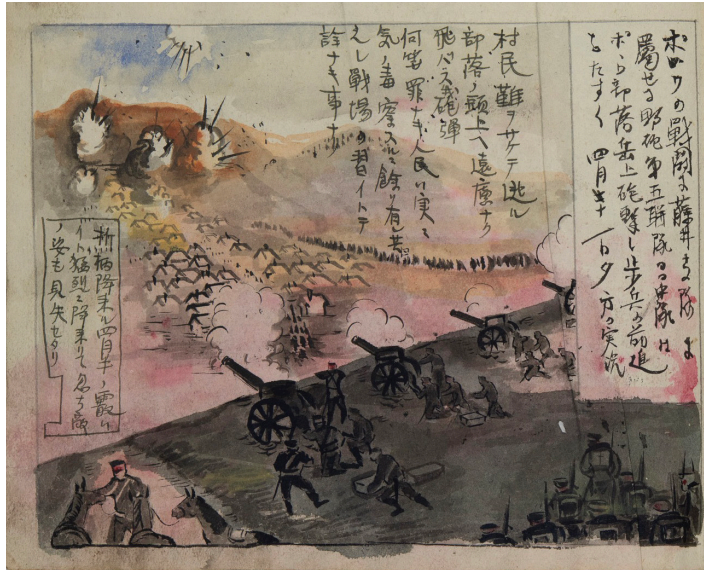 の戦闘に藤井支隊に
属せる野砲第五聯隊の中隊は
部落岳上砲撃し歩兵の前進
をたすく 四月 一日夕方の実況
村民難ヲサケテ逃ル
部落ノ頭上ヘ遠慮ナク
飛バス砲弾
何等罪ナキ人民ハ実ニ
気ノ毒察スルニ餘リ有レ共
之レ戦場の習イトテ
詮ナキ事ナリ
折柄降来ル四月半ノ霰ハ
イト猛烈ニ降来りて忽ち敵
ノ姿も見失セタリ